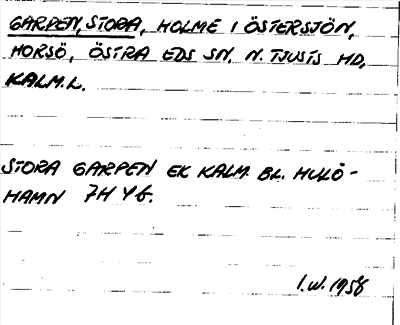 GARPEN, STORA, HOLME I ÖSTERSJÖN,
HORSÖ, ÖSTRA EDS SN, N. TJUSTS HD,
KALM.L.
STORA GARPEN EK KALM. BL. HULÖ-
HAMN 7H Y6.
I.W. 1958